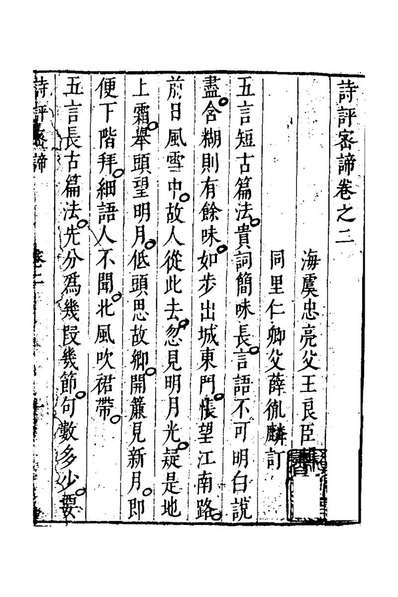 詩評密諦卷之二
海虞忠亮父王良臣
同里仁卿父薛胤麟訂
五言短古篇法貴詞簡味長言語不可明白說
盡含糊則有餘味如步出城東門悵望江南路
前日風雪中故人從此去忽見明月光疑是地
上霜舉頭望明月低頭思故鄉開簾見新月即
便下階拜細語人不聞北風吹裙帶
五言長古篇法先分爲幾段幾節句數多少要
詩評密諦
卷二